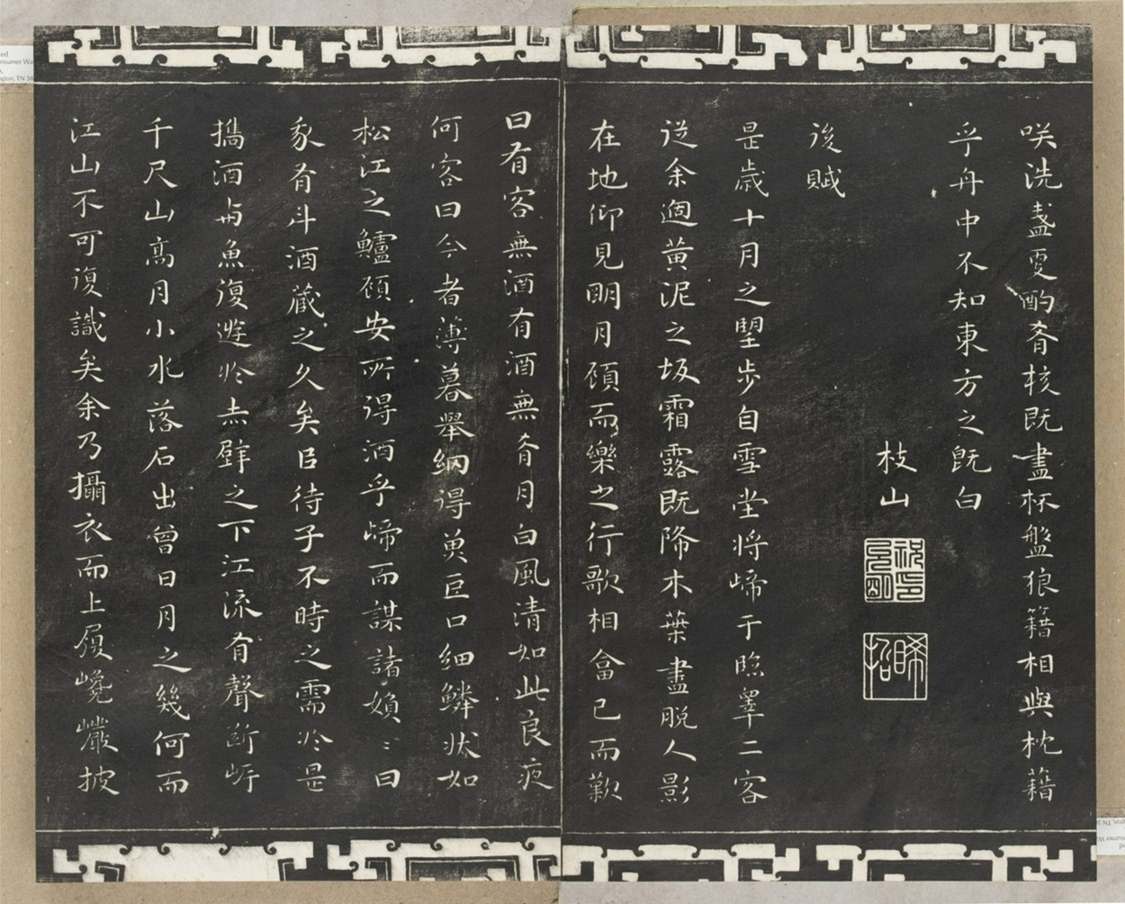 咲洗盞更酌肴核既盡杯盤狼籍相與枕藉
乎舟中不知東方之既白
枝山
祝允明印
晞喆
後賦
是歲十月之朢步自雪堂將歸于臨睾二客
從余過黃泥之坂霜露既降木葉盡脫人影
在地仰見明月顧而樂之行歌相畣已而歎
曰有客無酒有酒無肴月白風清如此良夜
何客曰今者薄暮舉網得魚巨口細鱗狀如
松江之鱸顧安所得酒乎歸而謀諸婦〻曰
我有斗酒藏之久矣臣待子不時之需於是
攜酒与魚復遊於赤壁之下江流有聲斷岸
千尺山高月小水落石出曾日月之幾何而
江山不可復識矣余乃攝衣而上履巉巖披